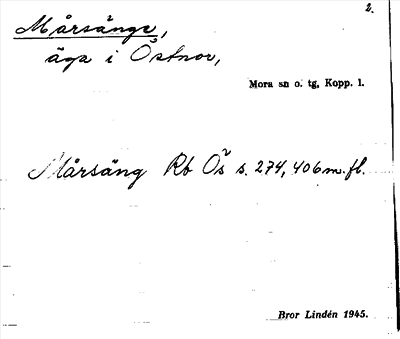 2.
Mårsänge,
äga i Östnor,
Mora sn o. tg, Kopp. l.
Mårsäng Rb Ös s. 274, 406 m. fl.
Bror Lindén 1945.